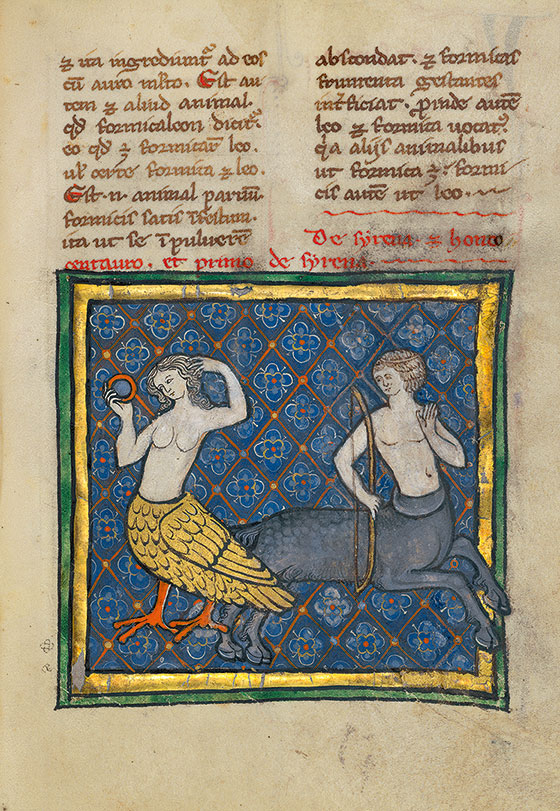 ⁊ ita ingrediunt᷑ ad eos
cū auro mlto. Est au
tem ⁊ aliud animal.
qd formicaleon dicit᷑.
eo qd ⁊ formicaꝝ leo.
ul' certe formica ⁊ leo.
Est .n. animal paruū
formicis satis īfestum.
ita ut se ī puluerē
abscondat. ⁊ formicas
frumenta gestantes
int̄ficiat. Proinde autē
leo ⁊ formica uocat᷑.
qa alijs animalibus
ut formica ē. formi
cis autē ut leo.
De syrena. ⁊ homo
centauro. et primo de syrena